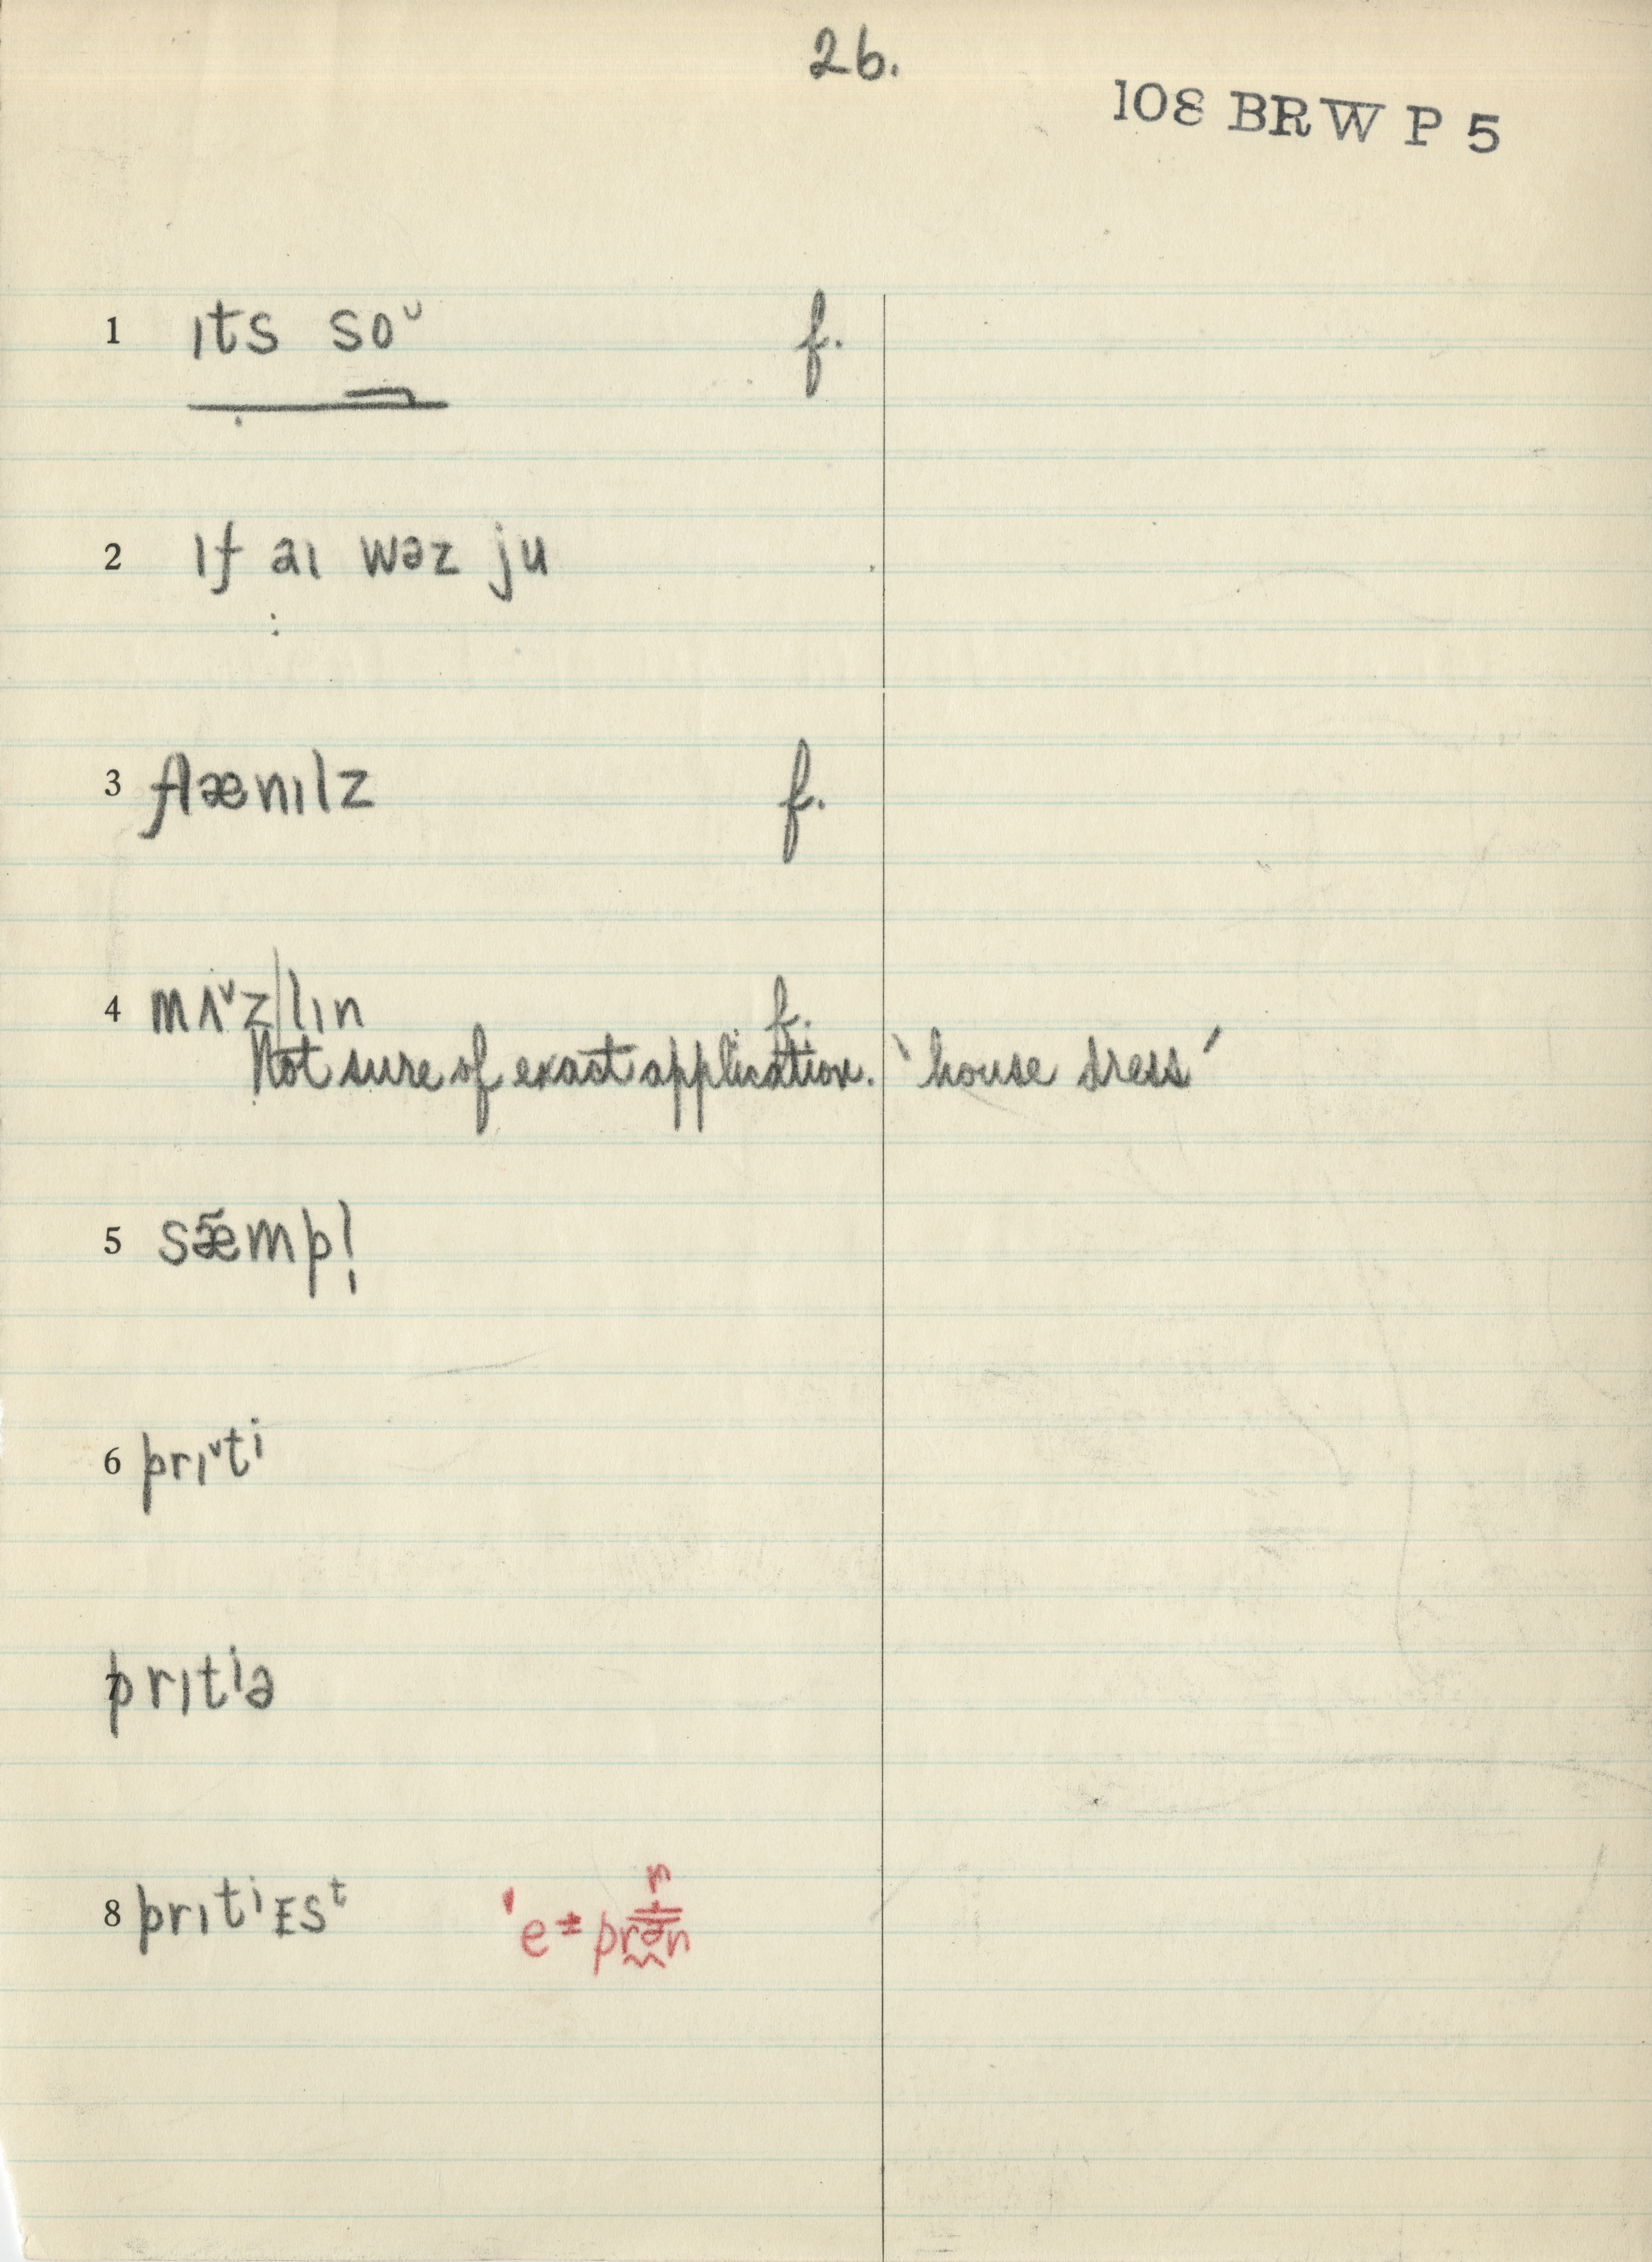 26.
108 BRW P 5
1 ɪts soᵛ f.
2 ɪf aɪ wəz ju
3 flænɪlz f.
4 mʌˇz|lɪn f.
Not sure of exact application. 'house dress'
5 sæ̃mpl̩
6 prɪˇtⁱ
7 prɪtⁱə
8 prɪtⁱɛsᵗ